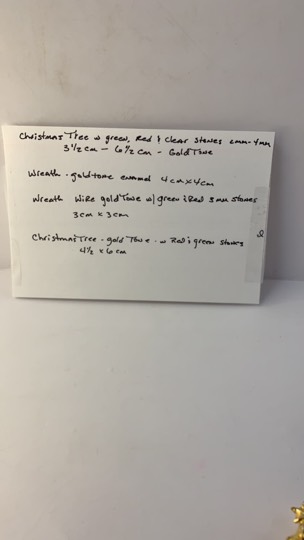 Christmas Tree w green, Red & Clear Stones 2mm-4mm
3 1/2 cm - 6 1/2 cm - Gold Tone
Wreath - gold tone enamel 4cm x 4cm
Wreath Wire gold Tone w/ green & Red 3mm stones
3cm x 3cm
Christmas Tree - gold Tone - w Red & green stones
4 1/2 x 6 cm